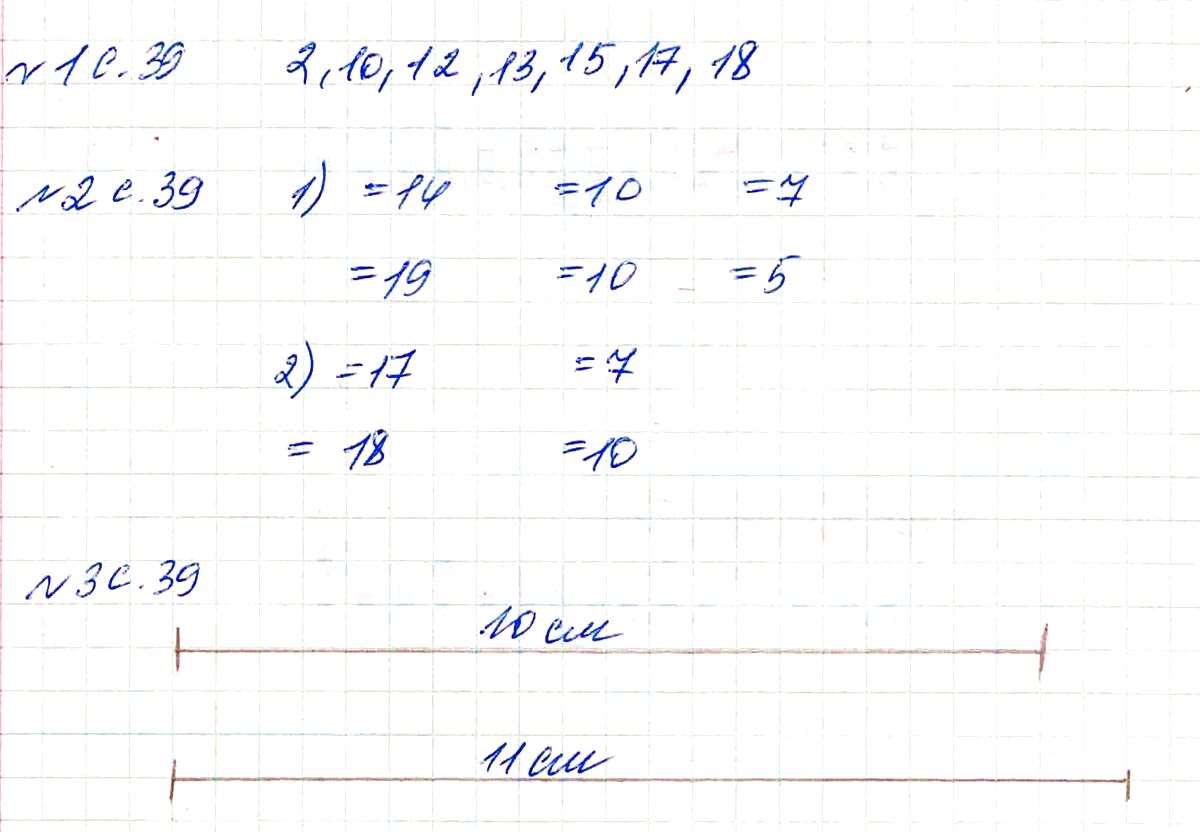 №1 с.39 2, 10, 12, 13, 15, 17, 18
№2 с.39 1) =14 =10 =7
=19 =10 =5
2) =17 =7
= 18 =10
№3 с.39
10 см
11 см